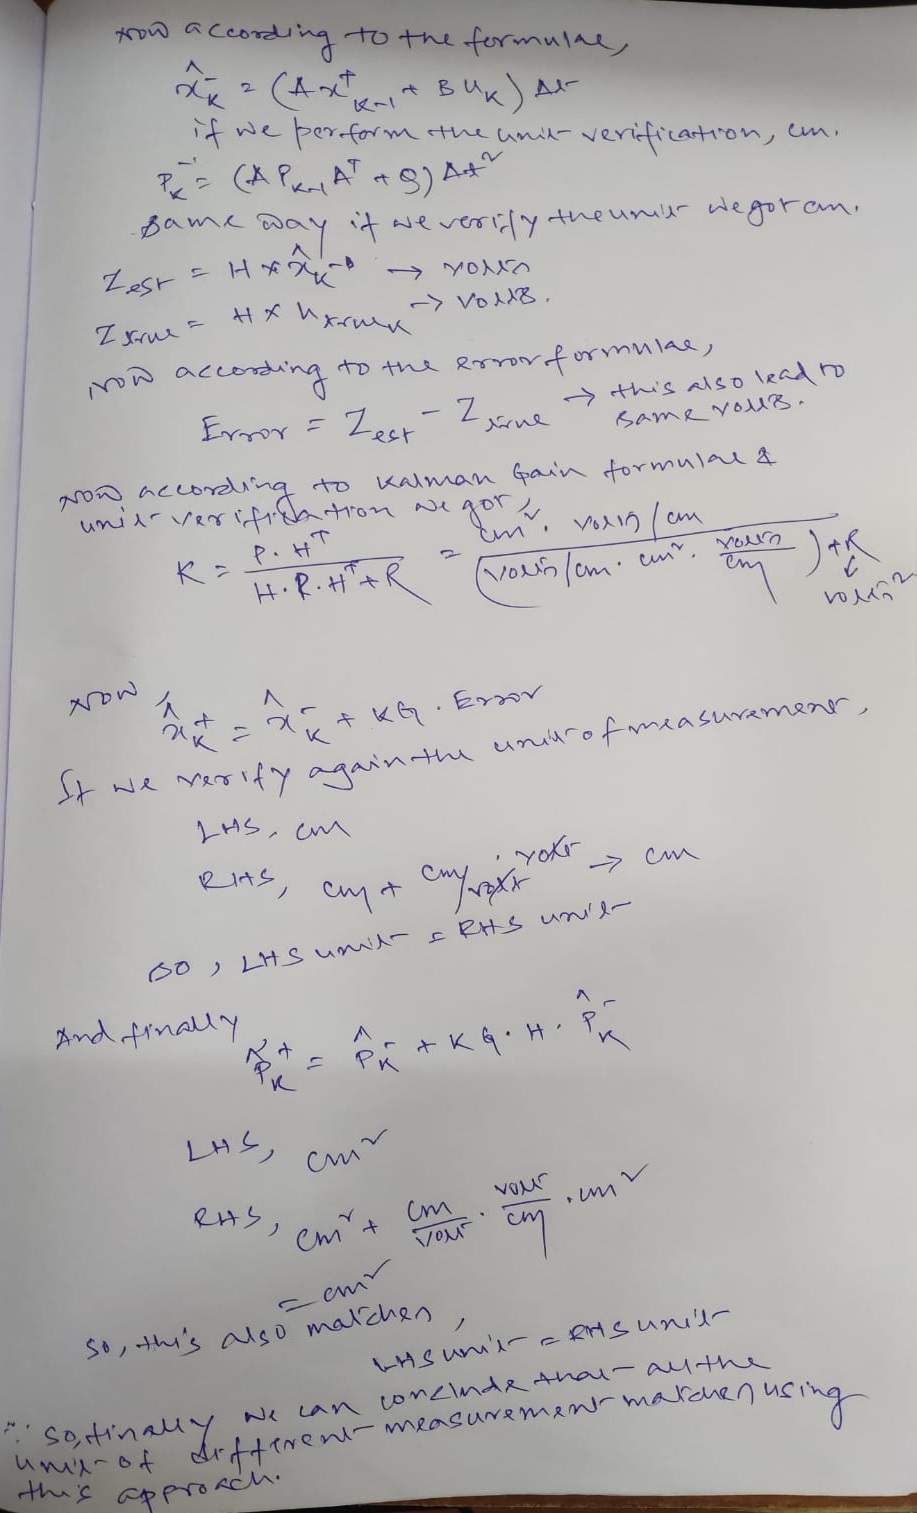 Now according to the formulae,
x̂ₖ⁻ = (A x⁺ₖ₋₁ + B Uₖ) Δt
if we perform the unit verification, cm.
Pₖ⁻ = (A Pₖ₋₁ Aᵀ + Q) Δt²
Same way if we verify the unit we got cm.
Z est = H * x̂ₖ⁻ → volts
Z true = H * h trueₖ → volts.
Now according to the error formulae,
Error = Z est - Z true → this also lead to
same volts.
Now according to Kalman Gain formulae &
unit verification we got,
K = P. Hᵀ / H. P. Hᵀ + R = cm². volts/cm / (volts/cm. cm². volts/cm) + R
↓
volts²
Now,
x̂ₖ⁺ = x̂ₖ⁻ + KG . Error
If we verify again the unit of measurement,
LHS, cm
RHS, cm + cm/volt . volt → cm
so, LHS unit = RHS unit
And finally
P̂ₖ⁺ = P̂ₖ⁻ + KG . H . P̂ₖ⁻
LHS, cm²
RHS, cm² + cm/volt . volt/cm . cm²
= cm²
So, this also matches,
LHS unit = RHS unit
∴ So, finally we can conclude that all the
unit of different measurement matches using
this approach.